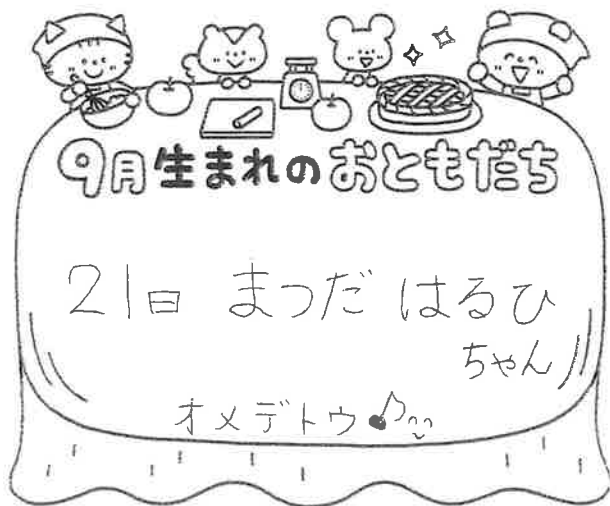 9月生まれのおともだち
21日 まつだ はるひ
ちゃん
オメデトウ♪